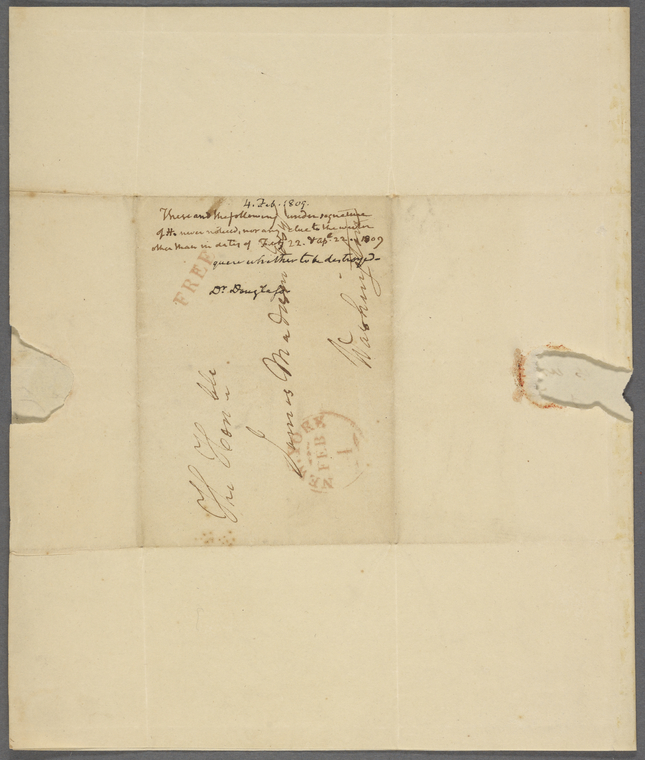 4. Feb. 1809.
These and the following under signature
of H. never noticed, nor any clue to the writer
other than in dates of Feby 22. & Apl 22. 1809
quere whether to be destroyed-
Dr. Douglass
FREE
The Honble
James Madison
Washington
YORK
FEB
1